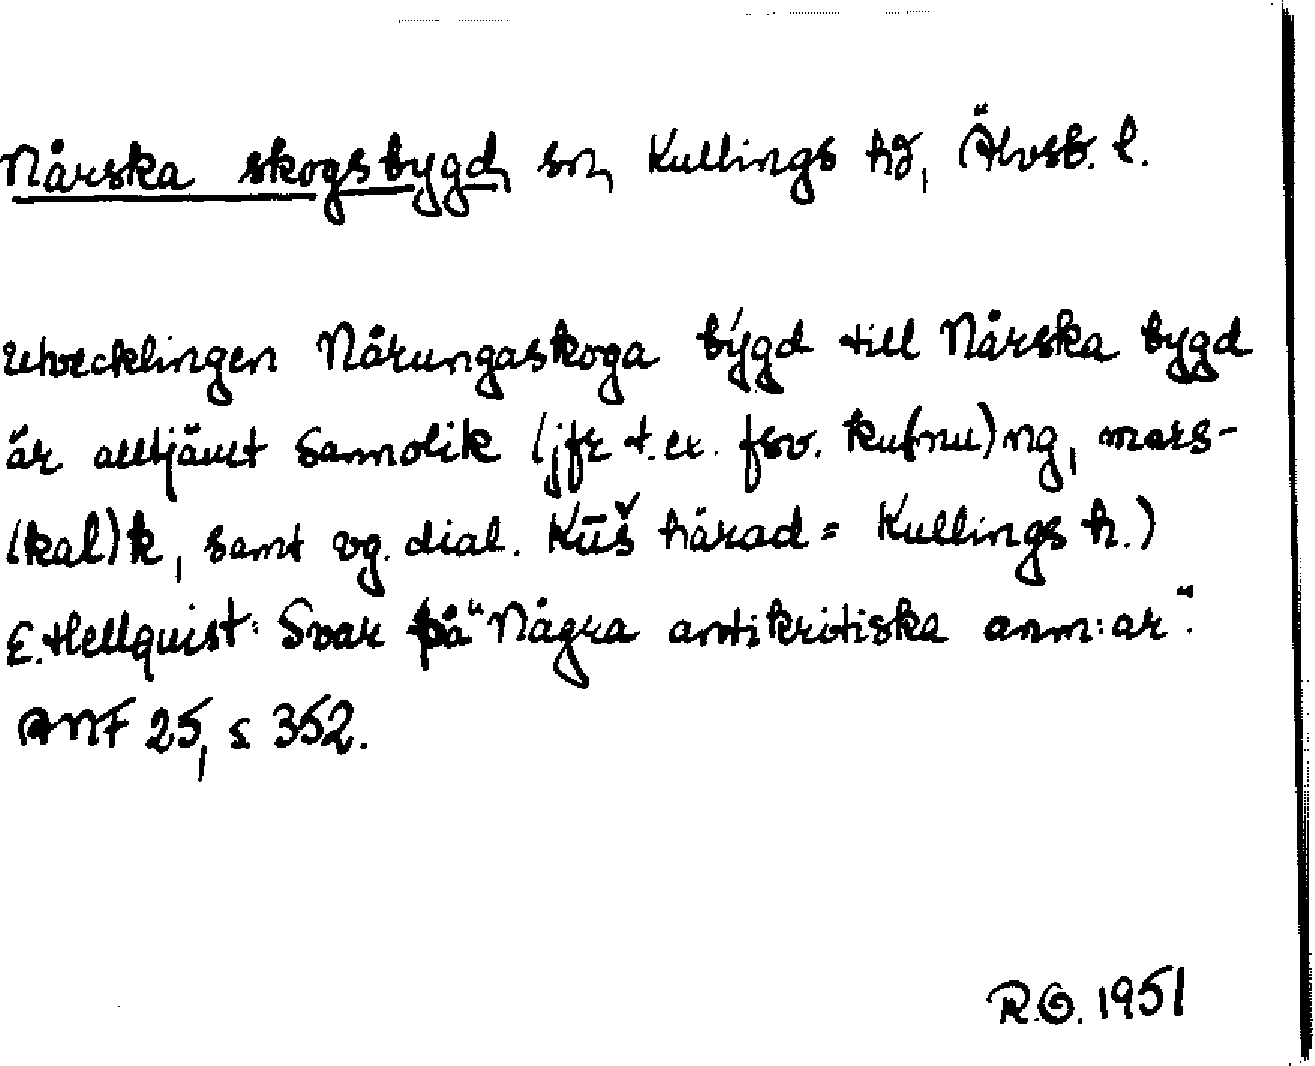 Nårska skogsbygd, sn, Kullings hd, Älvsb. l.
Utvecklingen Nårungaskoga býgd till Nårska bygd
är alltjämt sannolik (jfr t.ex. fsv. ku(nu)ng, mars-
(kal)k, samt vg. dial. Kūš härad = Kullings h.)
E. Hellquist: Svar på "Några antikritiska anm:ar".
ANF 25, s 352.
R.O. 1951